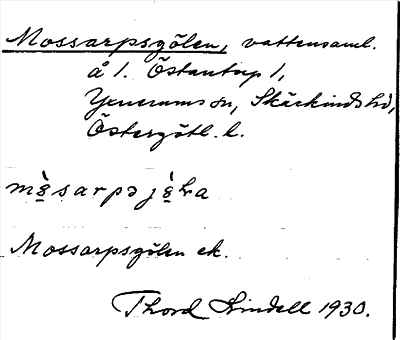 Mossarpsgölen, vattensaml.
å 1. Östantorp 1,
Yxnerums sn, Skärkinds hd,
Östergötl. l.
Mossarpsgölen ek.
Thord Lindell 1930.